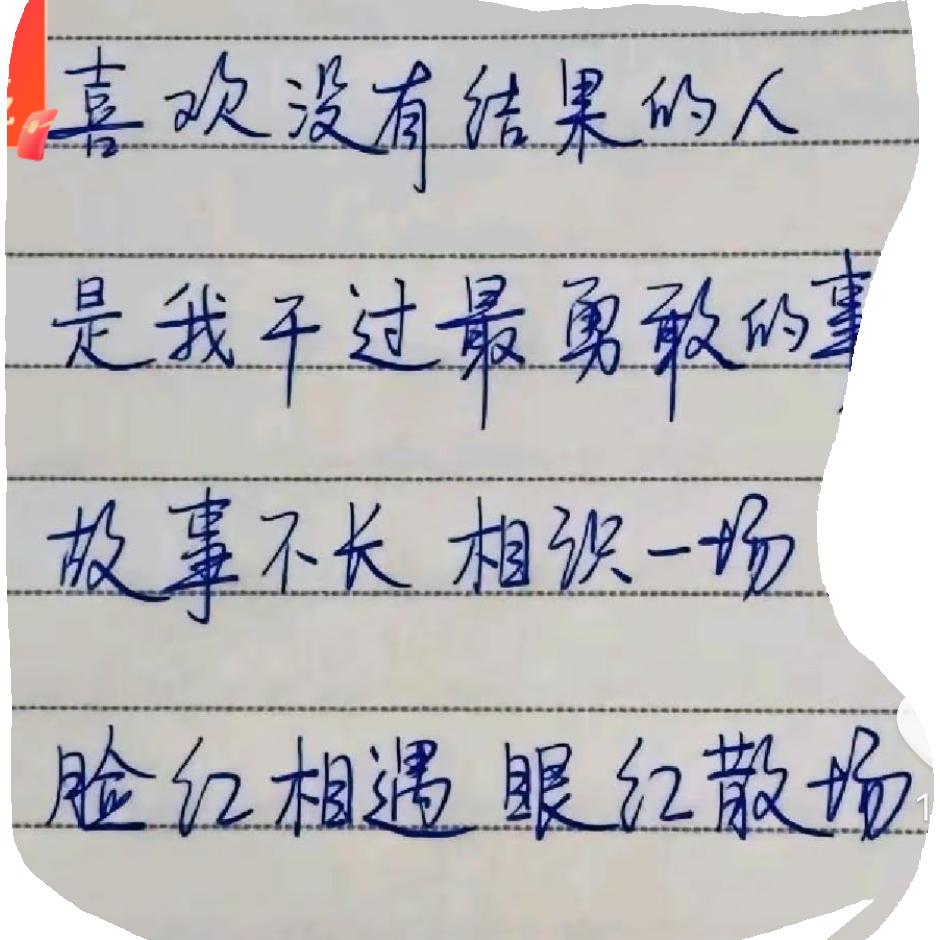 喜欢没有结果的人
是我干过最勇敢的事
故事不长 相识一场
脸红相遇 眼红散场